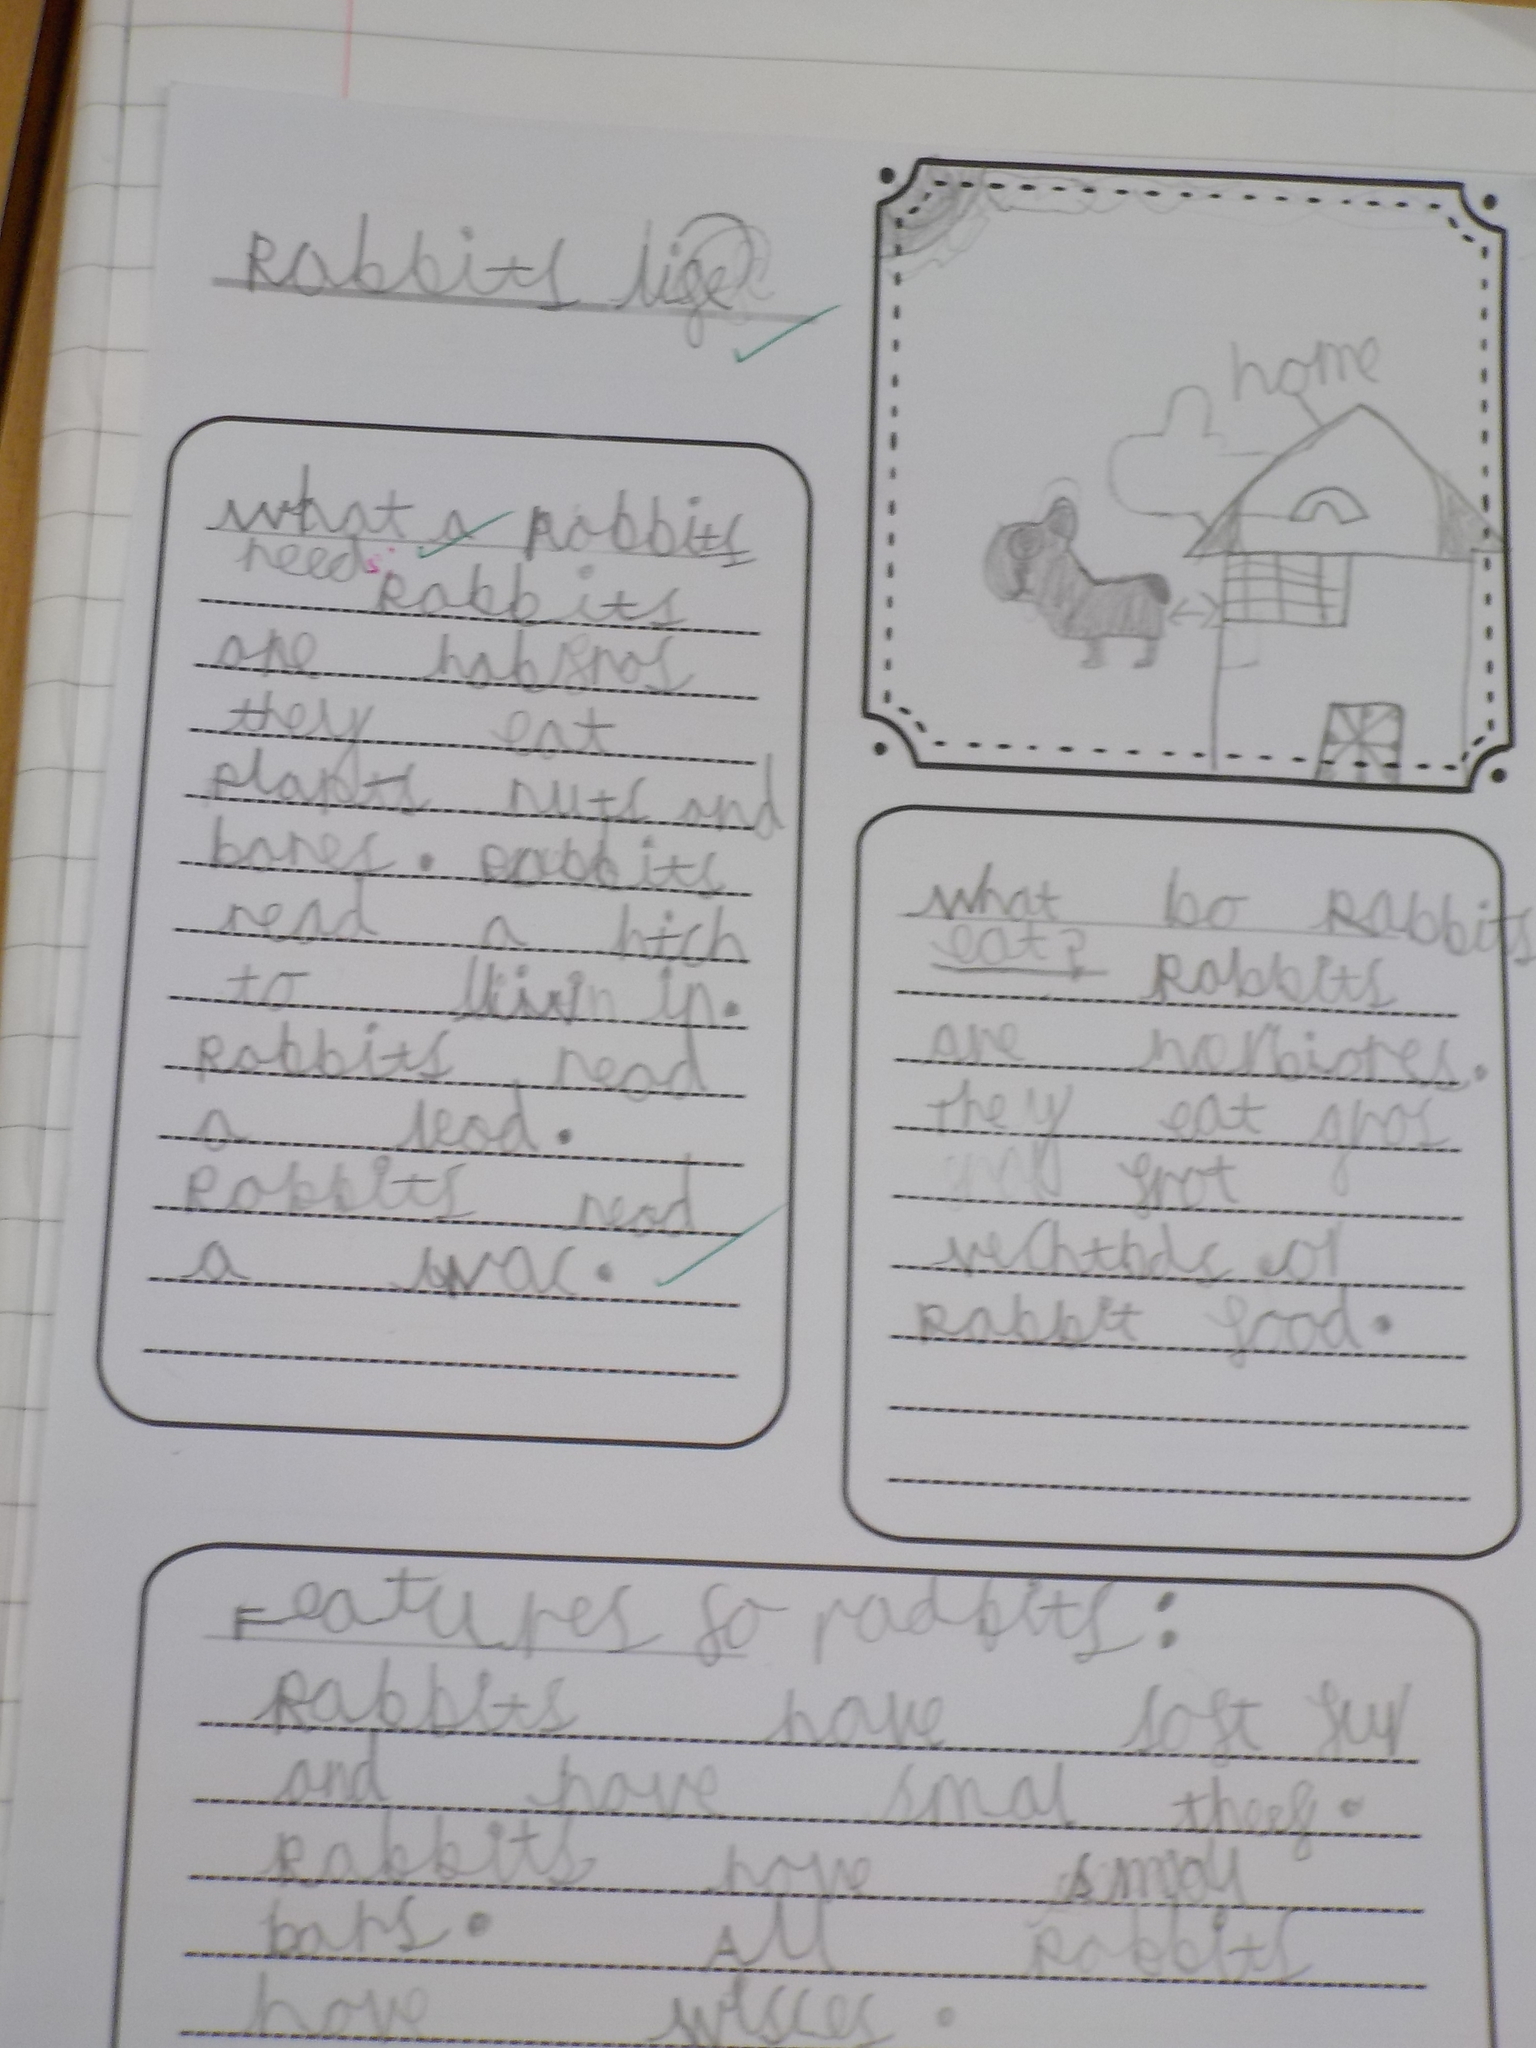 Rabbits life
home
what a Rabbits
needs
Rabbits
are
they eat
plants nuts and
bares. rabbits
nead a hich
to in.
Rabbits nead
a lead.
Rabbits nead
a wac.
what bo Rabbits
eat? Rabbits
are herbiores.
they eat gras
frot
vechtbds or
Rabbit food.
Features fo radbits:
Rabbits have soft fur
and have smal theef.
Rabbits have
bars. All Rabbits
have wisces.